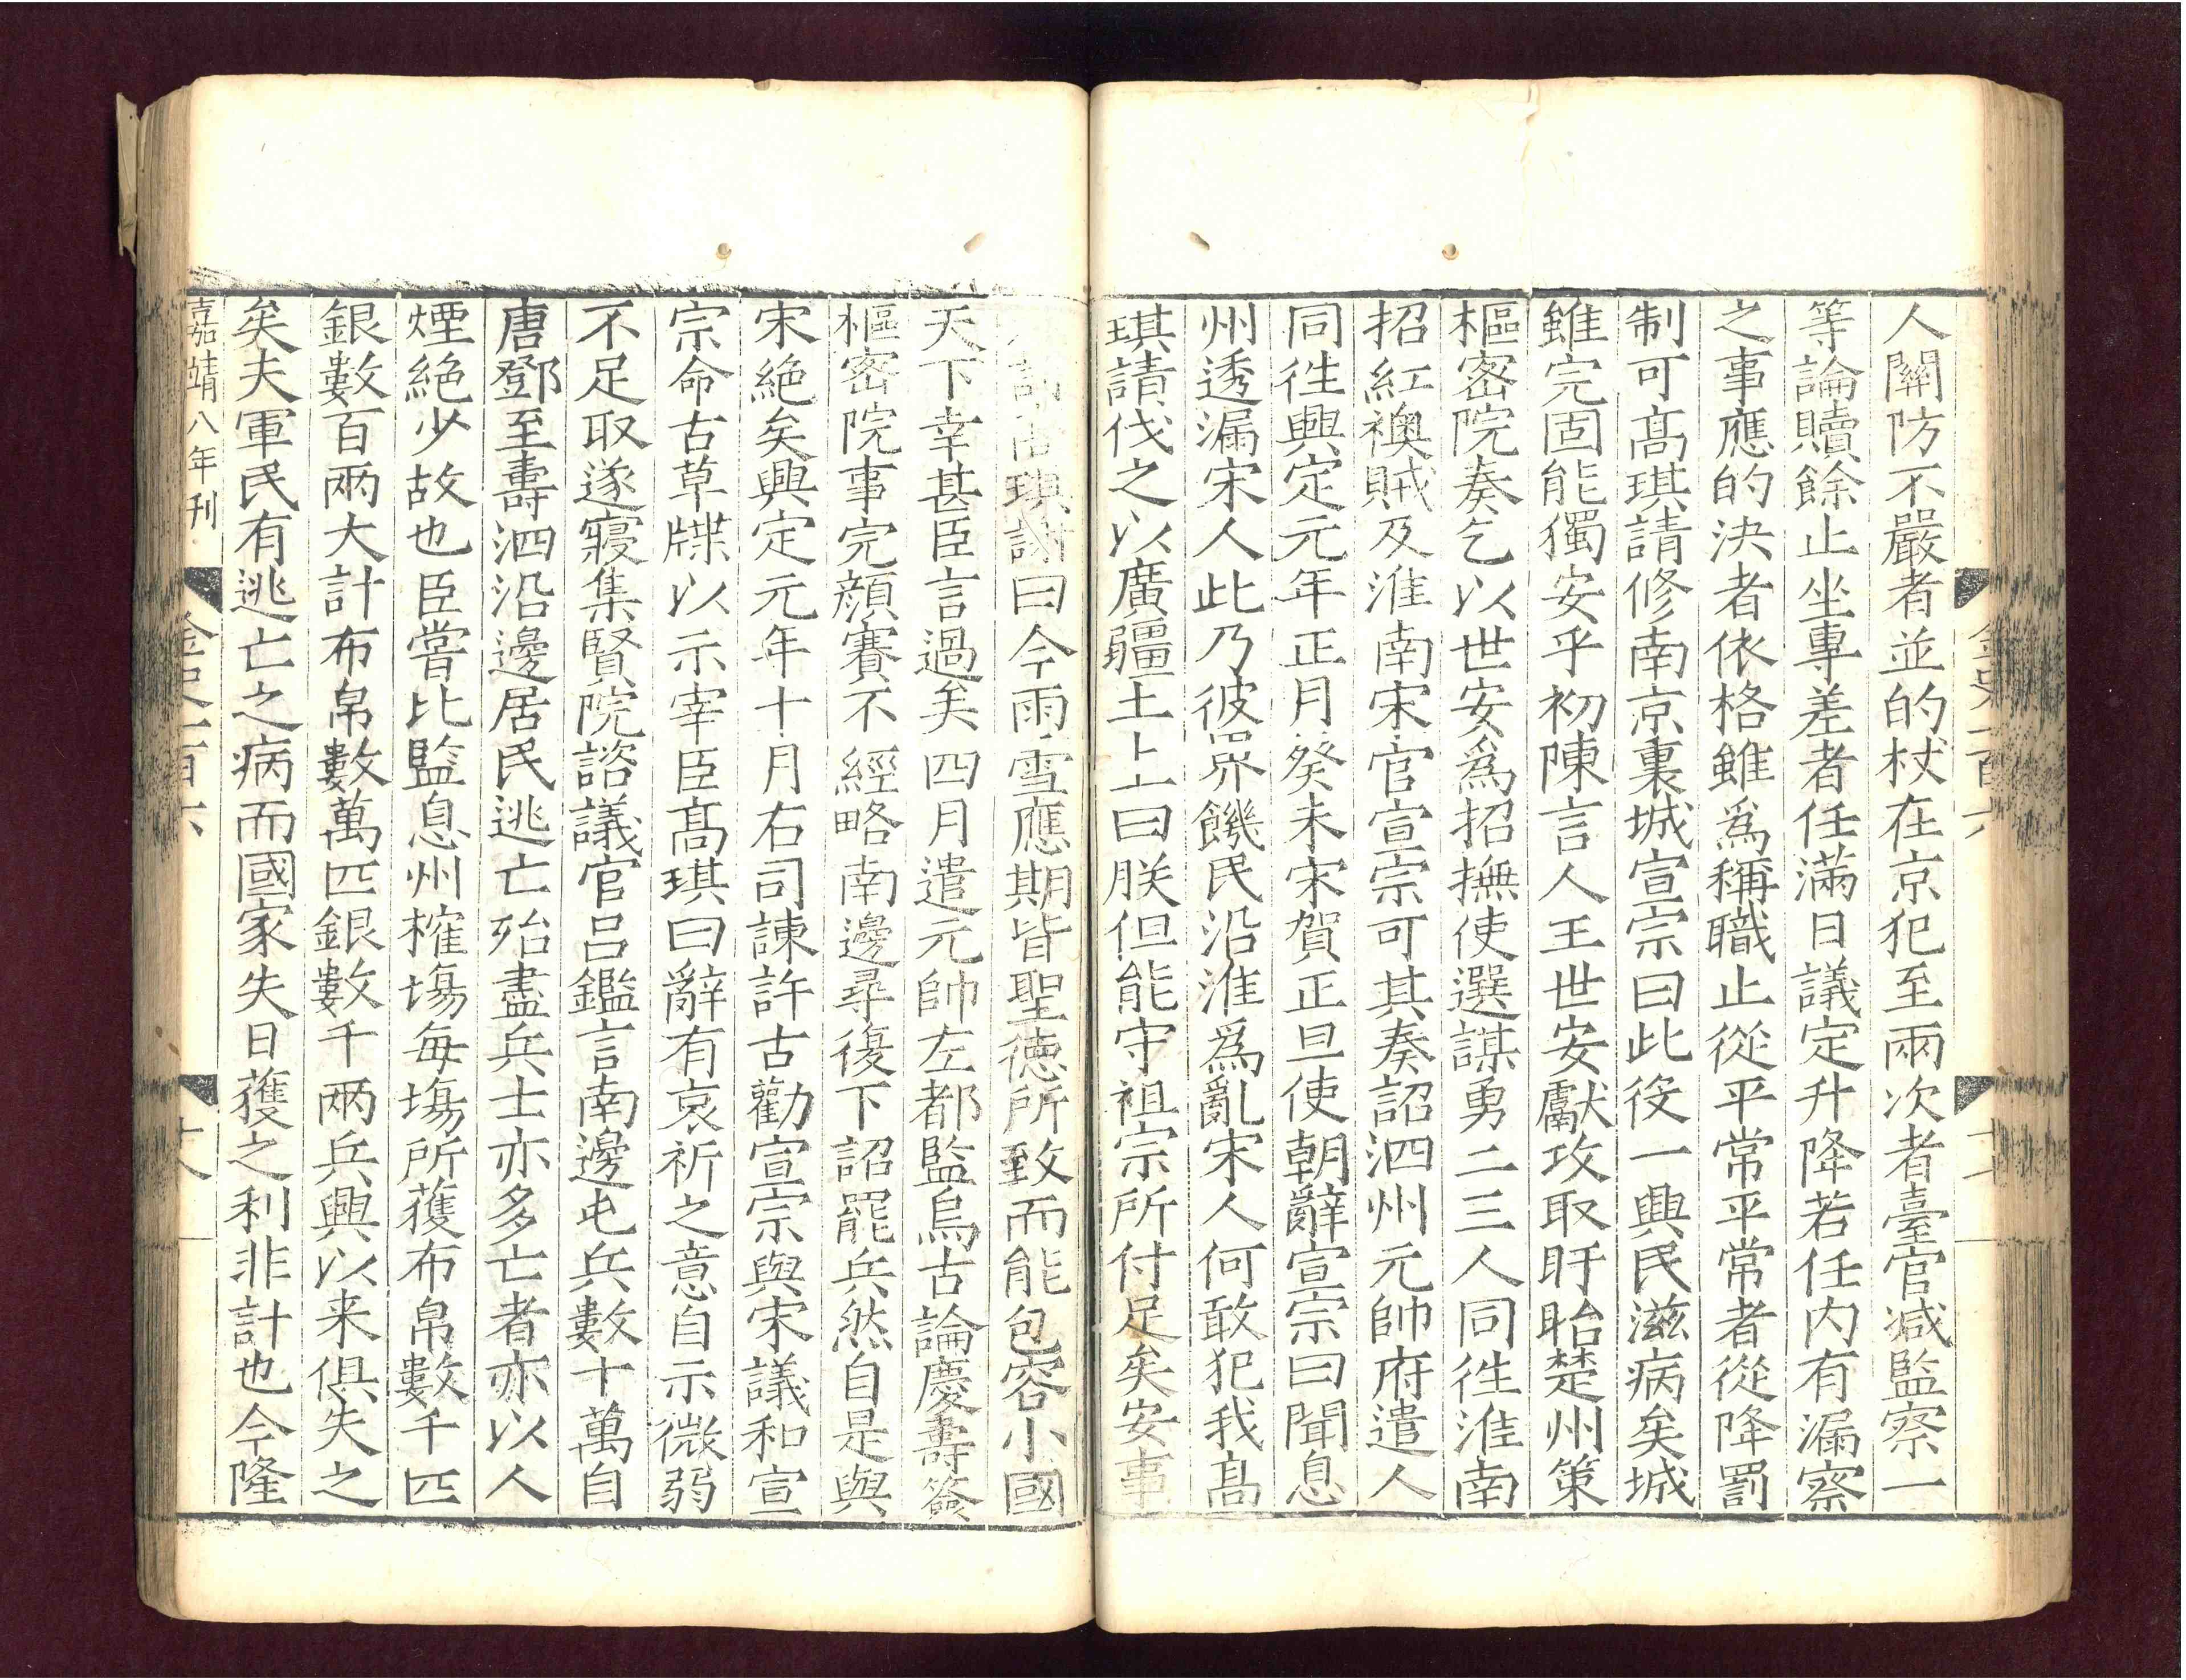 人關防不嚴者並的杖在京犯至兩次者臺官减監察一
等論贖餘止坐專差者任滿日議定升降若任内有漏察
之事應的決者依格雖爲稱職止從平常平常者從降罰
制可髙琪請修南京裏城宣宗曰此役一興民滋病矣城
雖完固能獨安乎初陳言人王世安獻攻取盱眙楚州策
樞密院奏乞以世安爲招撫使選謀勇二三人同徃淮南
招紅襖賊及淮南宋官宣宗可其奏詔泗州元帥府遣人
同徃興定元年正月癸未宋賀正旦使朝辭宣宗曰聞息
州透漏宋人此乃彼界饑民沿淮爲亂宋人何敢犯我髙
琪請伐之以廣疆土上曰朕但能守祖宗所付足矣安事
琪謝曰今雨雪應期皆聖德所致而能包容小國
天下幸甚臣言過矣四月遣元帥左都監烏古論慶壽簽
樞密院事完顔賽不經略南邊尋復下詔罷兵然自是與
宋絶矣興定元年十月右司諫許古勸宣宗與宋議和宣
宗命古草牒以示宰臣髙琪曰辭有哀祈之意自示微弱
不足取遂寢集賢院諮議官吕鑑言南邊屯兵數十萬自
唐鄧至壽泗沿邊居民逃亡殆盡兵士亦多亡者亦以人
煙絶少故也臣嘗比監息州榷塲每塲所獲布帛數千匹
銀數百兩大計布帛數萬匹銀數千兩兵興以来俱失之
矣夫軍民有逃亡之病而國家失日獲之利非計也今隆
嘉靖八年刊 金史一百六 十八